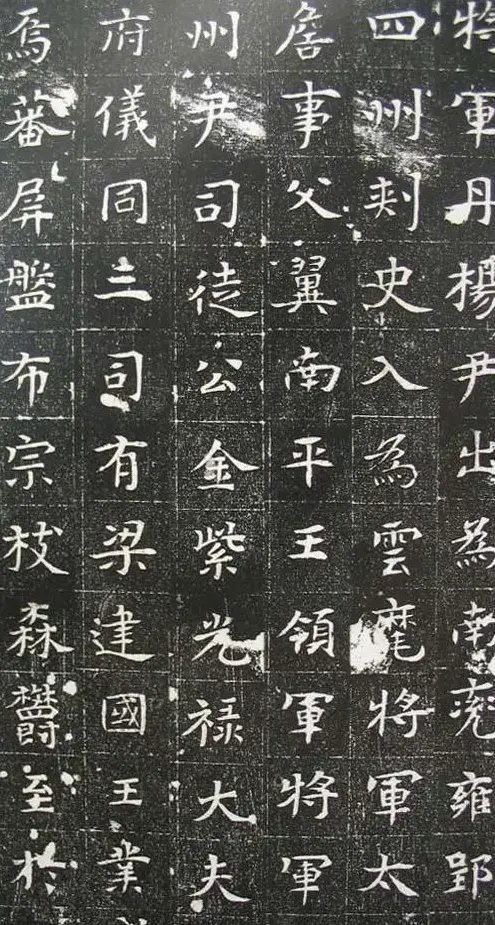 將軍丹楊尹出為南兖雍郢
四州刾史入為雲麾將軍太
詹事父翼南平王領軍將軍
州尹司徒公金紫光禄大夫
府儀同三司有梁建國王業
焉蕃屏盤布宗枝森欝至扵